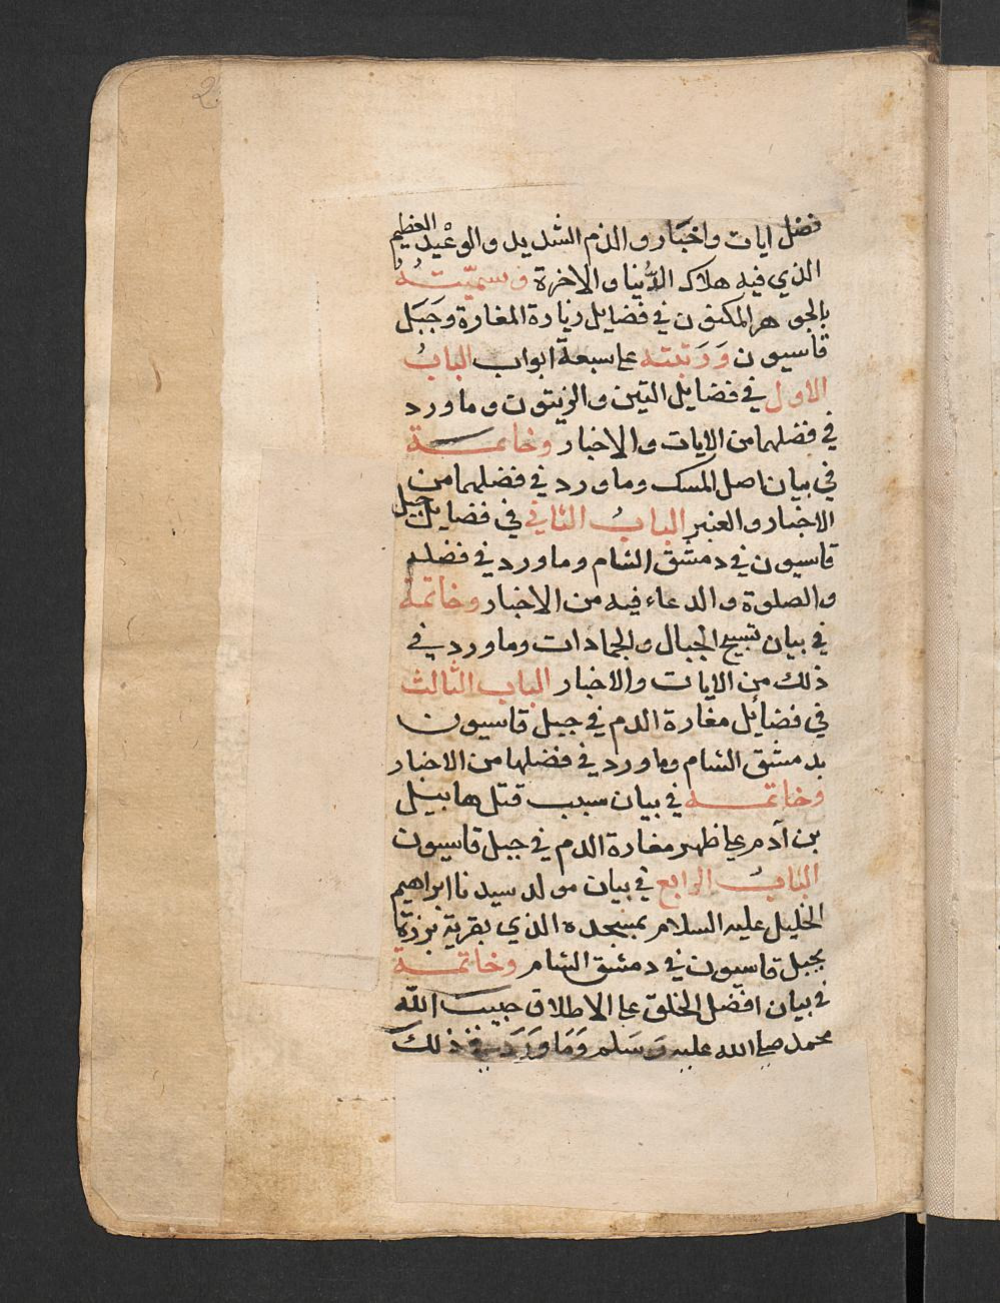 2
فضل ايات واخبار والذم الشديد والوعيد العظيم
الذي فيه هلاك الدُنيا والاخرة وسميّتهُ
بالجوهر المكنون في فضايل زيارة المغارة وجَبَل
قاسيون وَرَتبته على سبعة ابواب البابُ
الاول في فضايل التين والزيتون وما ورد
في فضلهما من الايات والاخبار وخاتمــة
في بيان اصل المسك وما ورد في فضلهما من
الاخبار والعنبر البابُ الثاني في فضايل جبل
قاسيون في دمشق الشام وما ورد في فضله
والصلوة والدعاء فيه من الاخبار وخاتمة
في بيان تسبيح الجبال والجمادات وما ورد في
ذلك من الايات والاخبار الباب الثالث
في فضائل مغارة الدم في جبل قاسيون
بدمشق الشام وما ورد في فضلها من الاخبار
وخاتمــه في بيان سبب قتل هابيل
بن آدم على ظهر مغارة الدم في جبل قاسيون
البابُ الرابع في بيان مولد سيدنا ابراهيم
الخليل عليه السلام بمسجده الذي بقرية برزة
بجبل قاسيون في دمشق الشام وخاتمــة
في بيان افضل الخلق على الاطلاق حبيب اللّه
محمد صلى الله عليه وَسَلم وَمَا وَرَدَ في ذلك